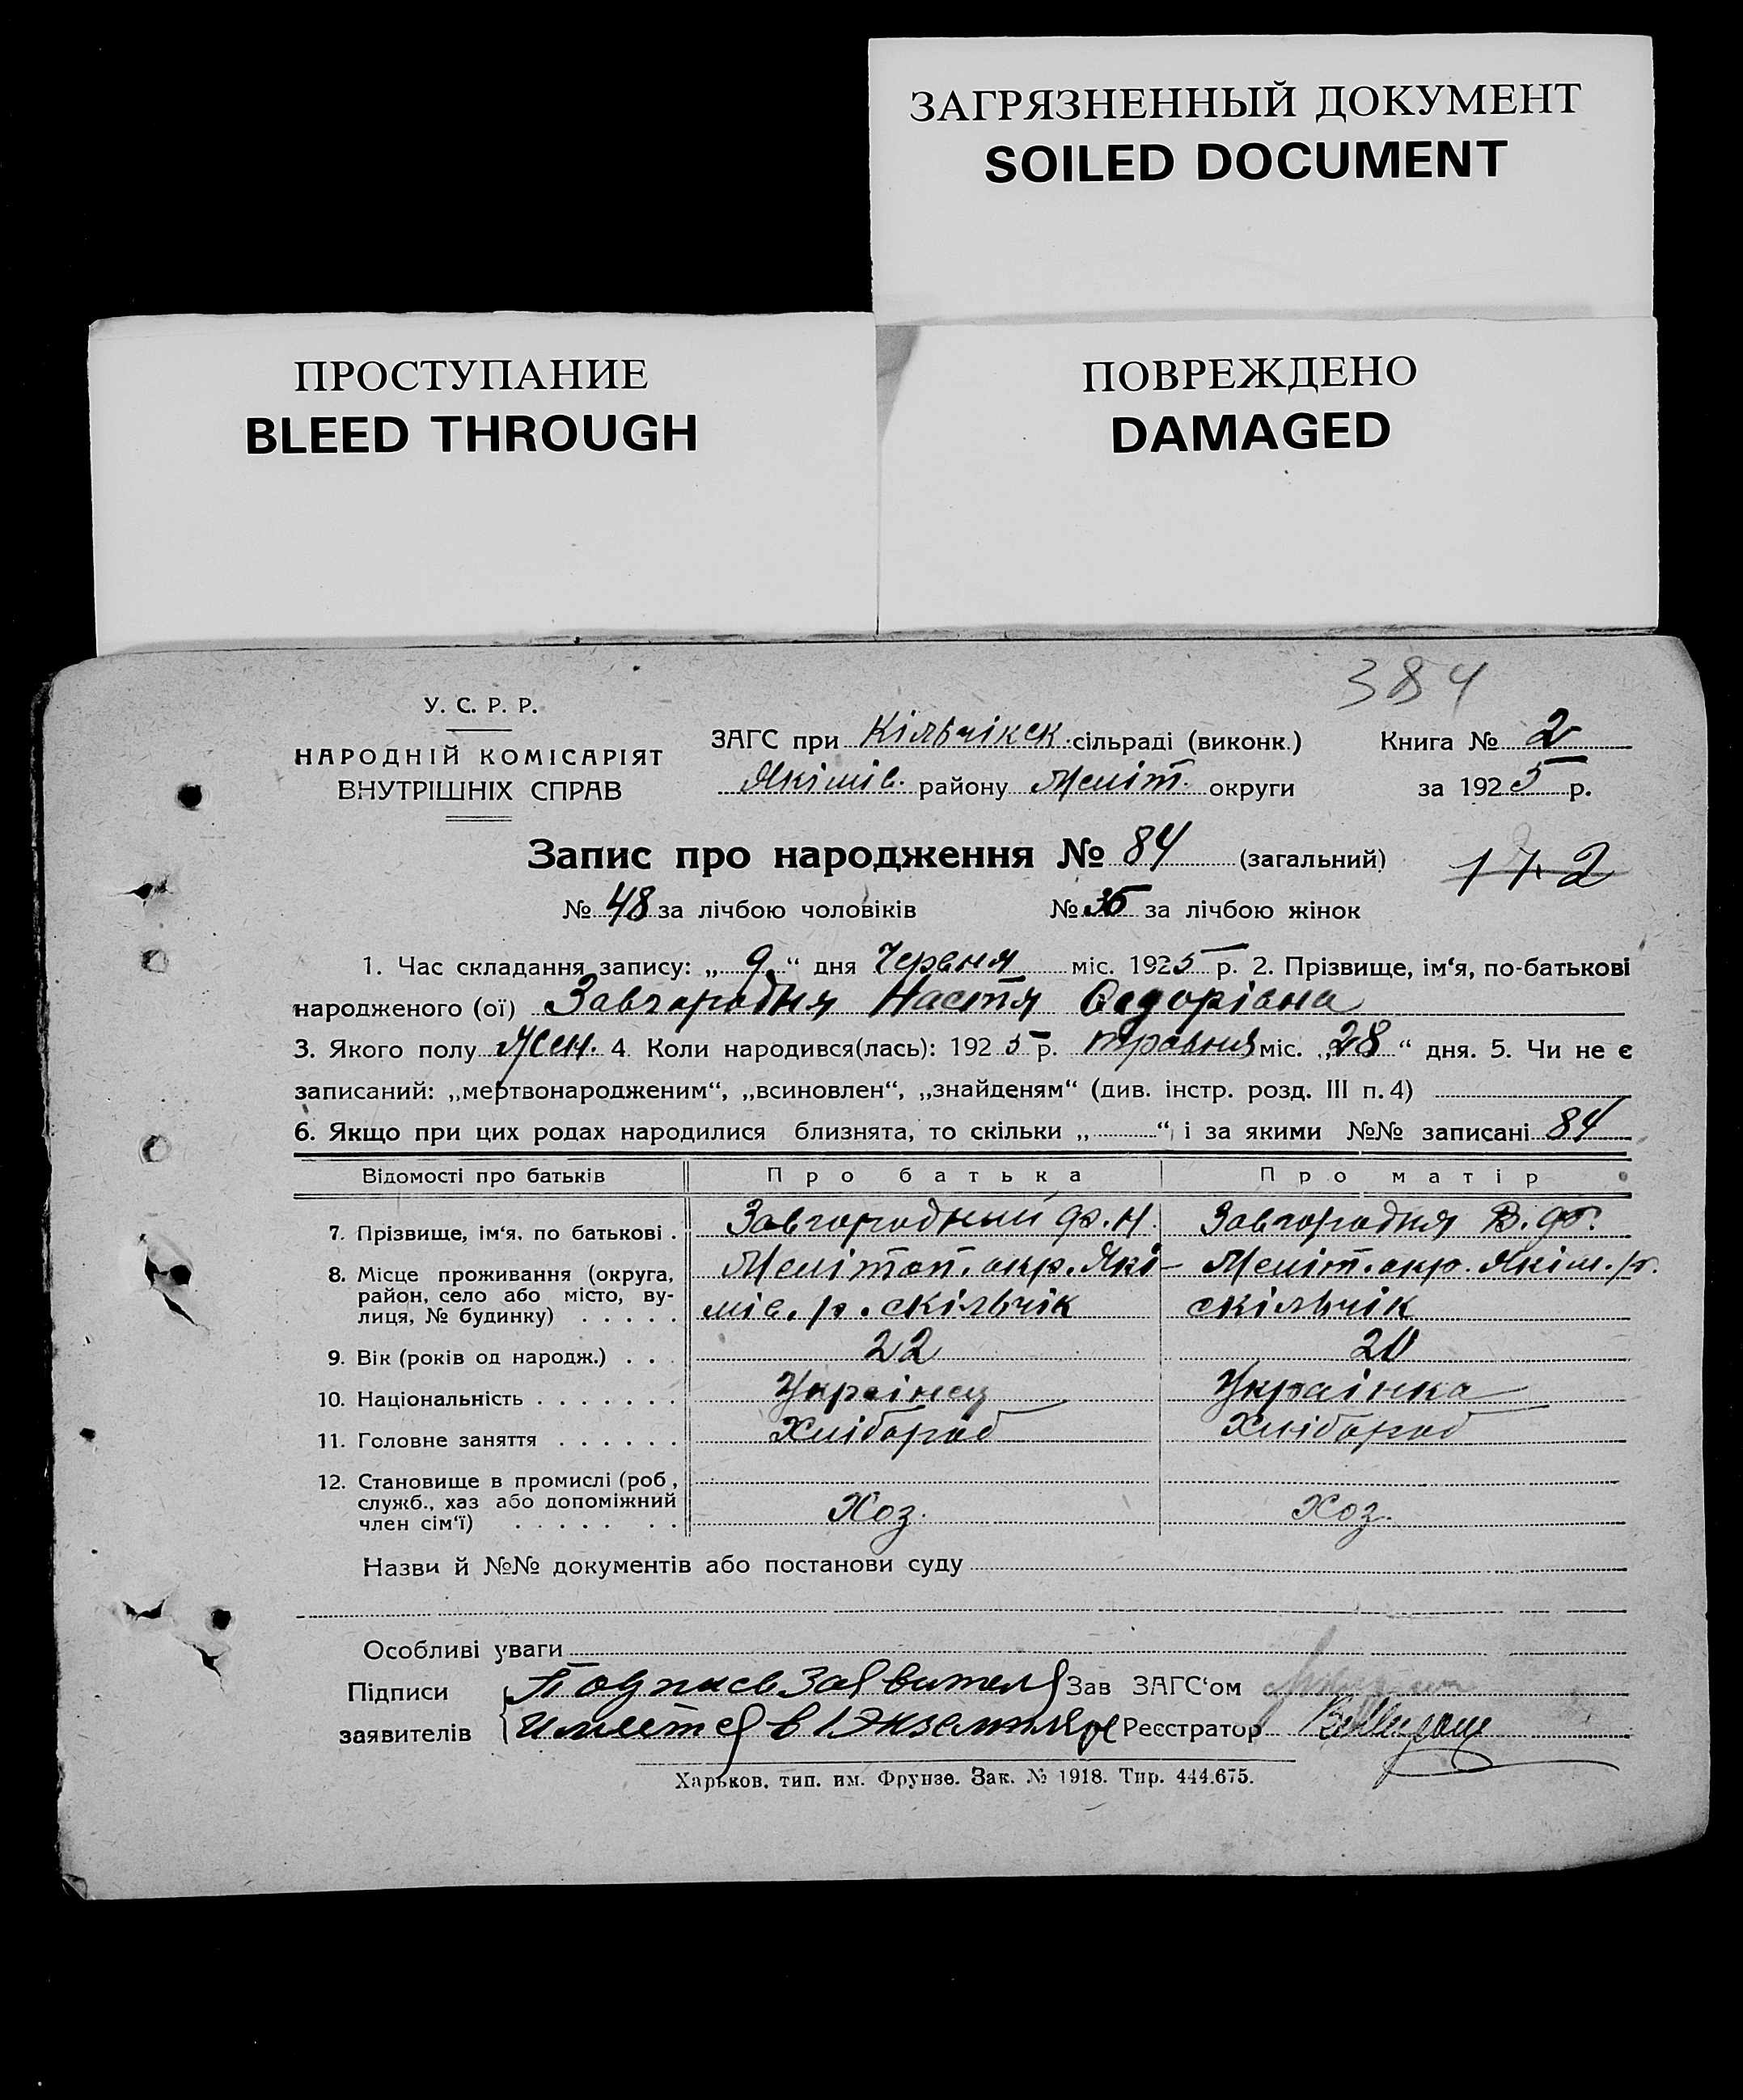 ЗАГРЯЗНЕННЫЙ ДОКУМЕНТ
SOILED DOCUMENT
ПРОСТУПАНИЕ
BLEED THROUGH
ПОВРЕЖДЕНО
DAMAGED
384
У. С. Р. Р.
НАРОДНІЙ КОМІСАРІЯТ
ВНУТРІШНІХ СПРАВ
ЗАГС при Кільчікск. сільраді (виконк.)
Якімів. району Меліт. округи
Книга № 2
за 1925 р.
Запис про народження № 84 (загальний)
172
№ 48 за лічбою чоловіків № 36 за лічбою жінок
1. Час складання запису: „ 9 “ дня Червня міс. 1925 р. 2. Прізвище, ім‘я, по-батькові
народженого (ої) Завгородня Настя Федорівна
3. Якого полу Жен. 4. Коли народився(лась): 1925 р. травня міс. „28“ дня. 5. Чи не є
записаний: „мертвонародженим“, „всиновлен“, „знайденям“ (див. інстр. розд. III п. 4)
6. Якщо при цих родах народилися близнята, то скільки „ “ і за якими №№ записані 84
Відомості про батьків Про батька Про матір
7. Прізвище, ім‘я, по батькові . Завгородний Ф. Н. Завгородня В. Ф.
8. Місце проживання (округа, район, село або місто, вулиця, № будинку) . . . . . Мелітоп. окр. Якімів. р. с кільчік Меліт. окр. Якім. р. с кільчік
9. Вік (років од народж.) . . . 22 20
10. Національність . . . . . . . Українец Українка
11. Головне заняття . . . . . . Хлібороб Хлібороб
12. Становище в промислі (роб., служб., хаз або допоміжний член сім‘ї) . . . . . . . Хоз. Хоз.
Назви й №№ документів або постанови суду
Особливі уваги
Підписи заявителів Подпись Заявителя Имеется в 1 Экземпляре
Зав ЗАГС‘ом
Реєстратор
Харьков. тип. им. Фрунзе. Зак. № 1918. Тир. 444.675.